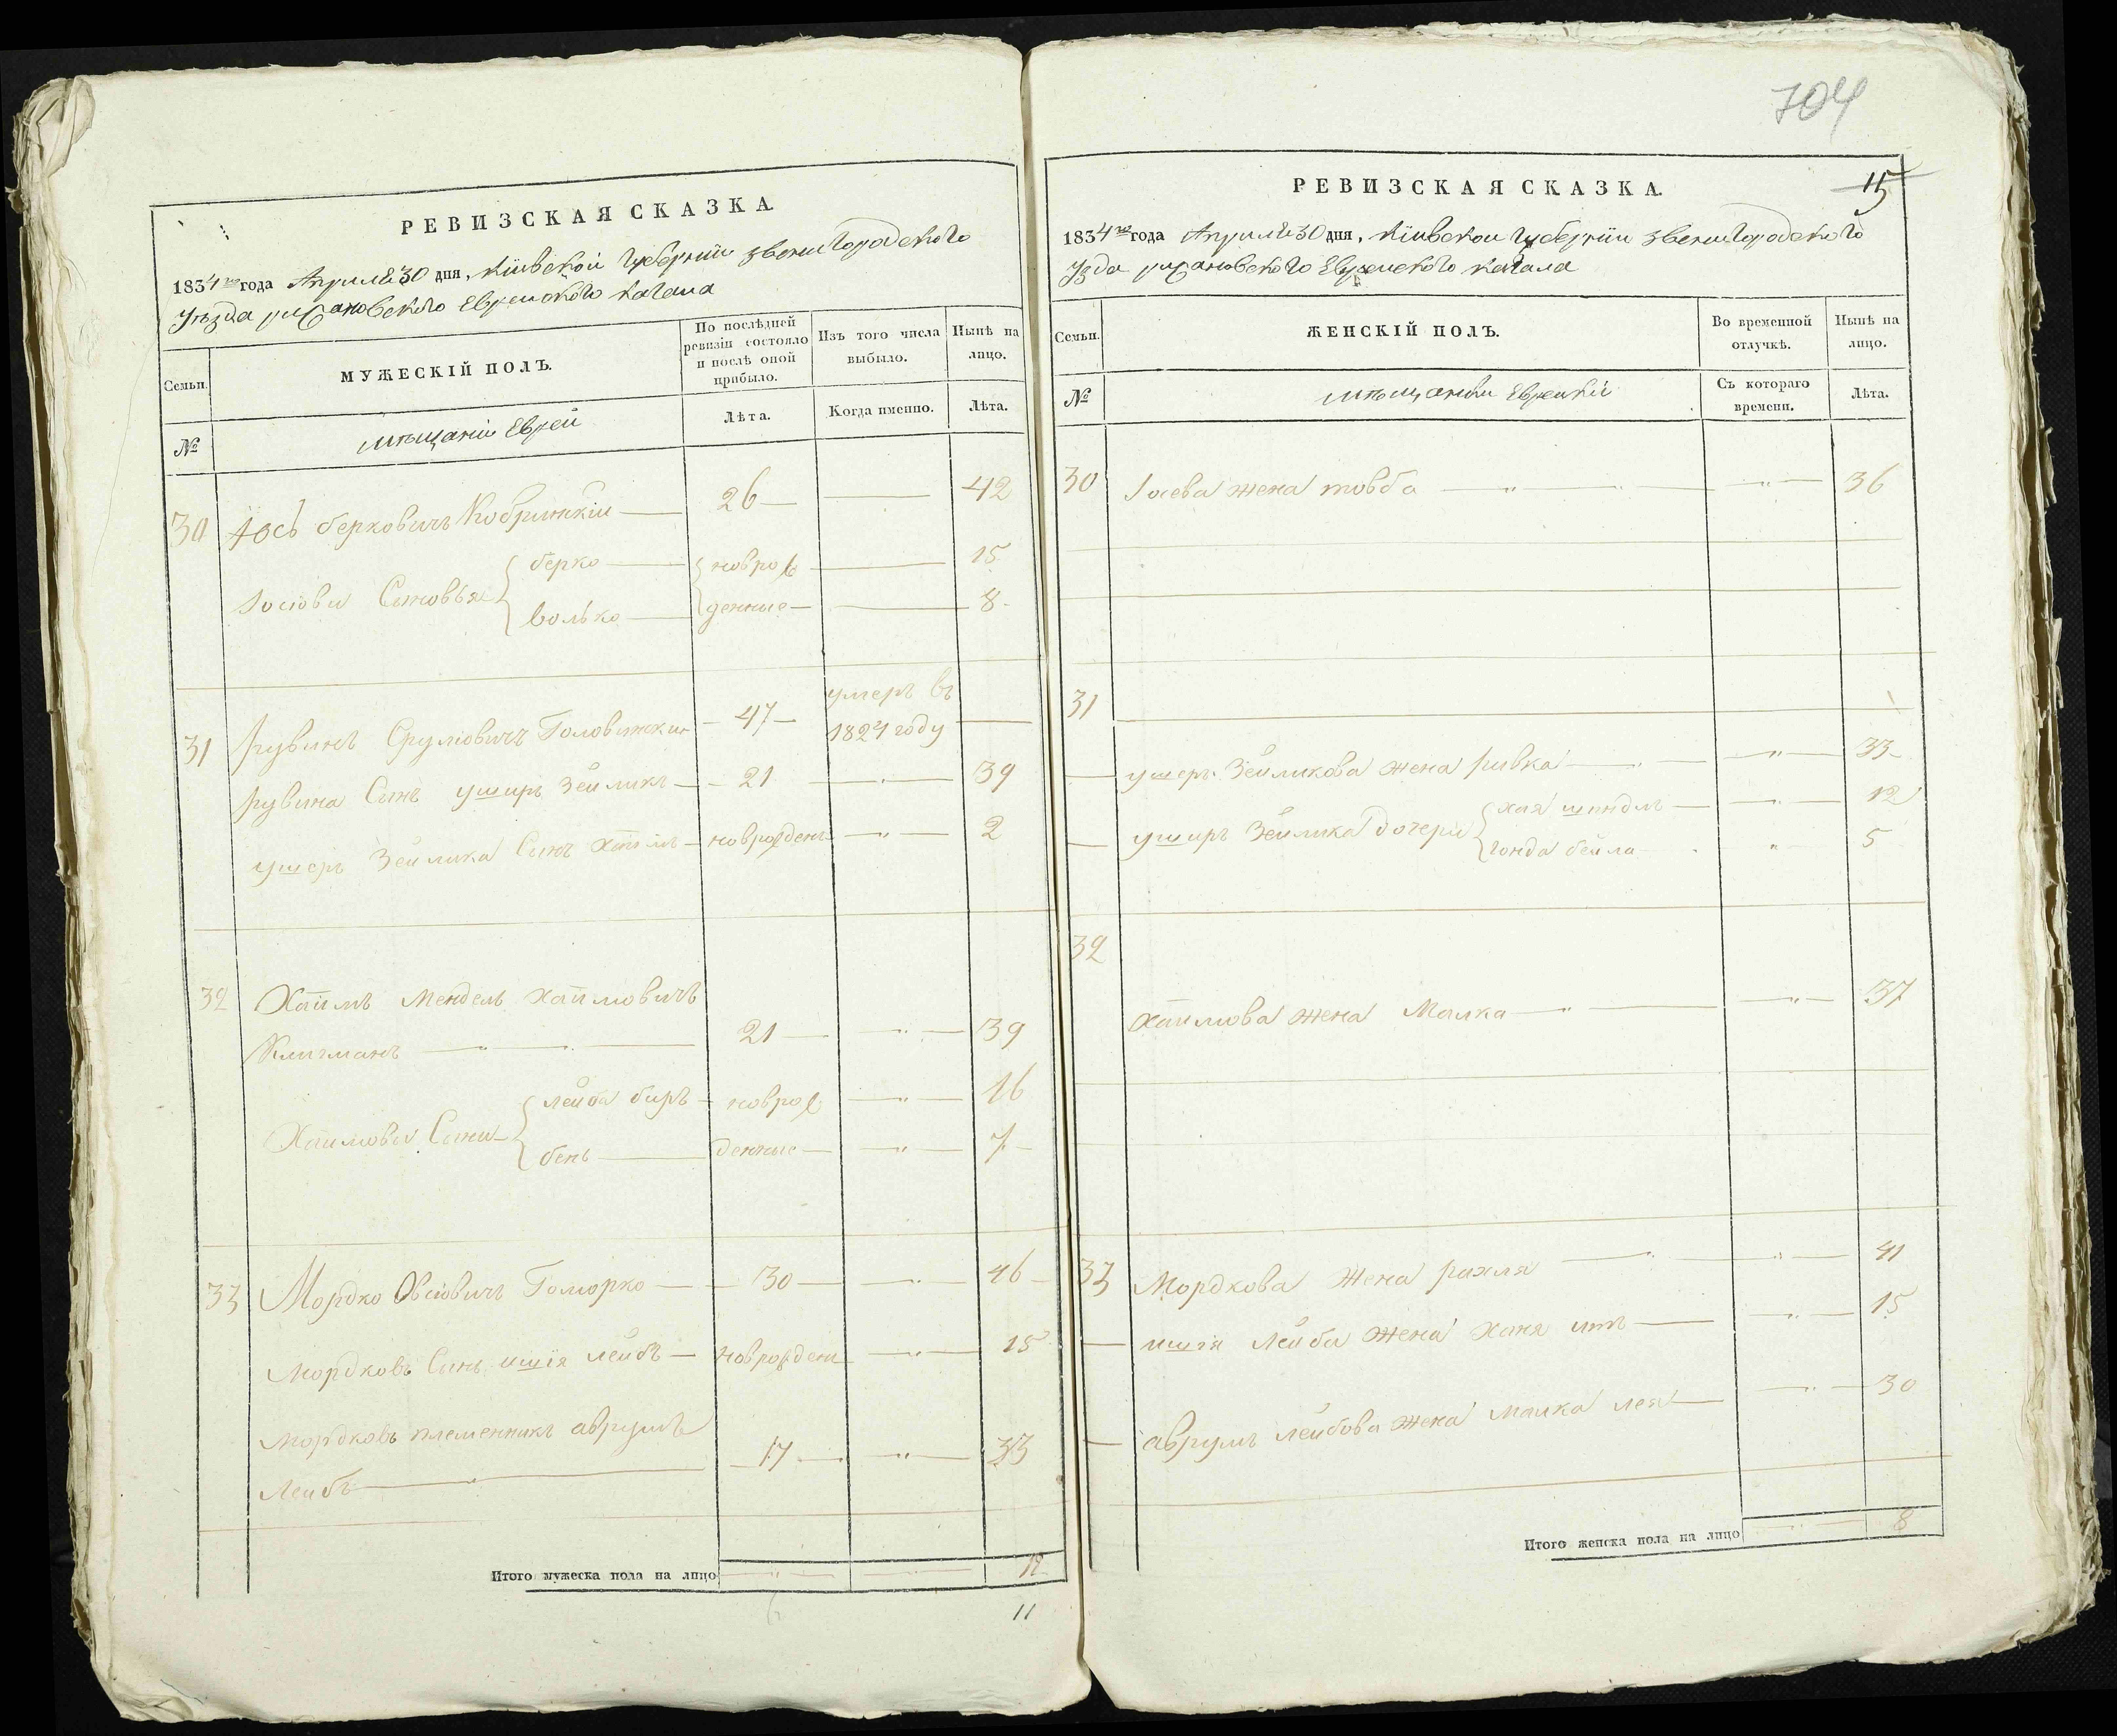 РЕВИЗСКАЯ СКАЗКА.
1834 го года Апреля 30 дня, Кіивской Губерніи Звенигородского
Уѣзда Рижановского Еврейского кагала
Семьи.
МУЖЕСКІЙ ПОЛЪ.
По послѣдней ревизіи состояло и послѣ оной прибыло.
Изъ того числа выбыло.
Нынѣ на лицо.
№
мѣщаніи Евреи
Лѣта.
Когда именно.
Лѣта.
30 Іось Берковичъ Кобринкіи 26 42
Іосіови Сыновья берко новро 15
волько жденные 8
31 Рувинъ Сруліовичъ 47 умеръ въ
1824 году
Рувина Сынъ Уширъ Зейликъ 21 39
Ушеръ Зейлика Сынъ Хаимъ новорожденъ 2
32 Хаимъ Мендель Хаимовичъ
Клигманъ 21 39
Хаимови Сыни лейба биръ новро 16
бень жденные 7
33 Мордко Овсіовичъ Гоморко 30 46
Мордковъ Сынъ ишія лейбъ новрожден 15
Мордковъ племенникъ аврумъ
Лейбъ 17 33
Итого мужеска пола на лицо 12
11
704
РЕВИЗСКАЯ СКАЗКА.
15
1834 го года Апреля 30 дня, Кіивской Губерніи Звенигородского
Узда Рижановского Еврейского кагала
Семьи.
ЖЕНСКІЙ ПОЛЪ.
Во временной отлучкѣ.
Нынѣ на лицо.
№
мѣщанки Еврейки
Съ котораго времени.
Лѣта.
30 Іосева жена товба 36
31
ушеръ Зейликова жена ривка 33
уширъ Зейлика дочери хая шпндль 12
гонда бейла 5
32
Хаимова жена Малка 37
33 Мордкова жена рахля 41
ишія Лейба жена Ханя 15
аврумъ лейбова жена малка лея 30
Итого женска пола на лицо 8